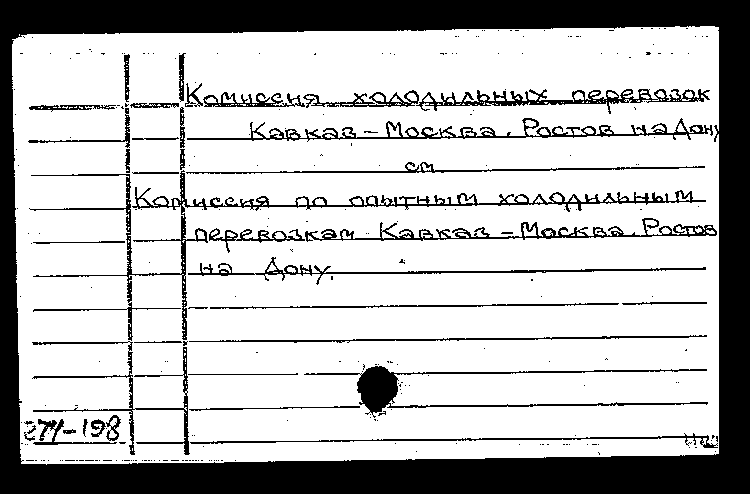 Комиссия холодильных перевозок
Кавказ - Москва. Ростов на Дону
см.
Комиссия по опытным холодильным
перевозкам Кавказ - Москва. Ростов
на Дону.
274-198